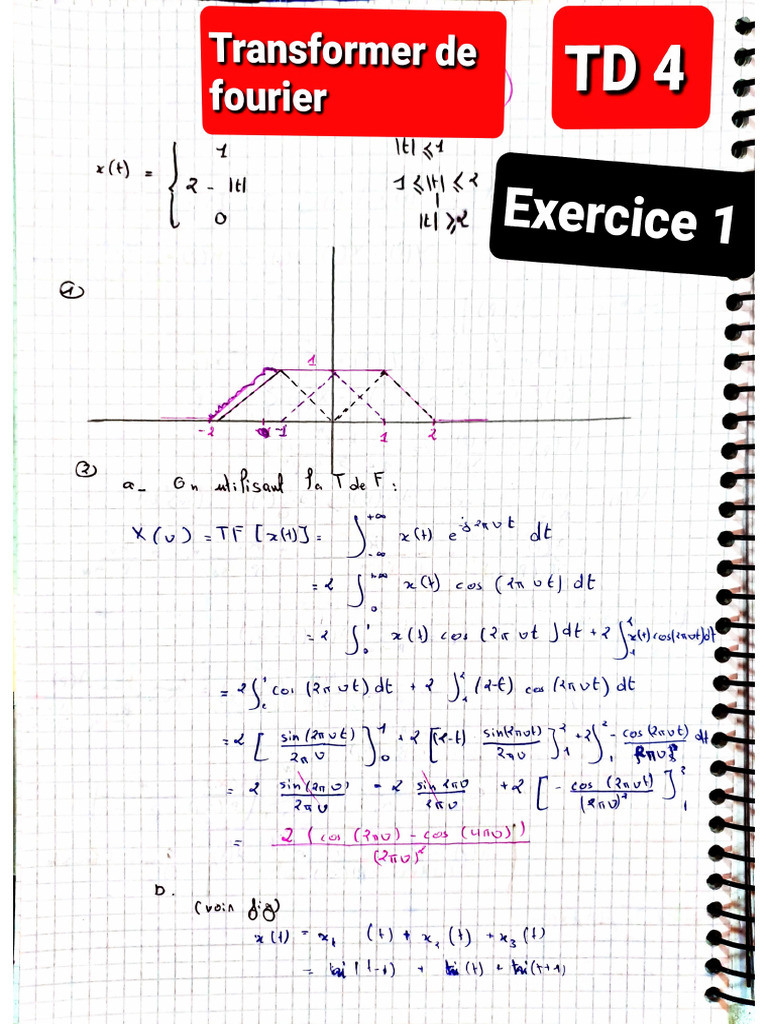 Transformer de
fourier
TD 4
Exercice 1
x(t) = { 1 |t| ⩽ 1
2 - |t| 1 ⩽ |t| ⩽ 2
0 |t| ⩾ 2
①
1
-2 -1 1 2
②
a- En utilisant la T de F :
X(υ) = TF [x(t)] = ∫_{-∞}^{+∞} x(t) e^{-j2πυt} dt
= 2 ∫_0^{+∞} x(t) cos (2πυt) dt
= 2 ∫_0^1 x(t) cos (2πυt) dt + 2 ∫_1^2 x(t) cos(2πυt) dt
= 2 ∫_0^1 cos (2πυt) dt + 2 ∫_1^2 (2-t) cos (2πυt) dt
= 2 [ sin(2πυt) / 2πυ ]_0^1 + 2 [(2-t) sin(2πυt) / 2πυ ]_1^2 + 2 ∫_1^2
= 2 sin(2πυ) / 2πυ - 2 sin 2πυ / 2πυ + 2 [ - cos (2πυt) / (2πυ)² ]_1^2
= 2 (cos (2πυ) - cos (4πυ)) / (2πυ)²
b.
(voir fig)
x(t) = x₁ (t) + x₂ (t) + x₃ (t)
= tri (t-1) + tri (t) + tri (t+1)